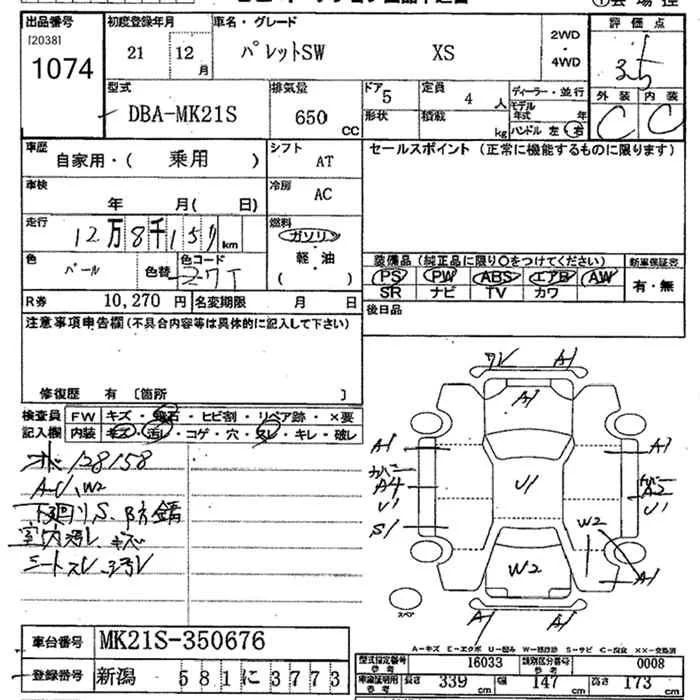 出品番号 初度登録年月 車名・グレード ①会場控
[2038] 1074
21 12月 パレットSW XS 2WD・4WD
評価点 3.5
型式 DBA-MK21S 排気量 650 CC
ドア 5 定員 4人 ディーラー・並行
形状 積載 kg モデル年式 年
ハンドル 左・右
外装 C 内装 C
車歴 自家用・( 乗用 ) シフト AT
セールスポイント (正常に機能するものに限ります)
車検 年 月( 日) 冷房 AC
走行 12万8千15 km
燃料 ガソリン 軽・油 ( )
色 パール 色替 色コード Z7T
装備品 (純正品に限り○をつけてください) 新車保証書
PS PW ABS エアB AW
SR ナビ TV カワ 有・無
R券 10,270円 名変期限 月 日 後日品
注意事項申告欄 (不具合内容等は具体的に記入して下さい)
修復歴 有 [箇所 ]
検査員 FW キズ・飛石・ヒビ割・リペア跡・×要
記入欄 内装 キズ・汚レ・コゲ・穴・スレ・キレ・破レ
オド 128158
A-U、W2
下廻りS、防錆
室内汚レ、キズ
シートスレ、汚レ
ワレ A1
A1
A1 A1
カバー A4 U1 カバー A2
U1 U1
S1 W2
W2 A1
スペア
A1 A1
A-キズ E-エクボ U-凹み W-補修跡 S-サビ C-腐食 XX-交換済
車台番号 MK21S-350676
登録番号 新潟 581に3773
型式指定番号 参考 16033 類別区分番号 参考 0008
車庫証明用 参考 長さ 339 cm 幅 147 cm 高さ 173 cm